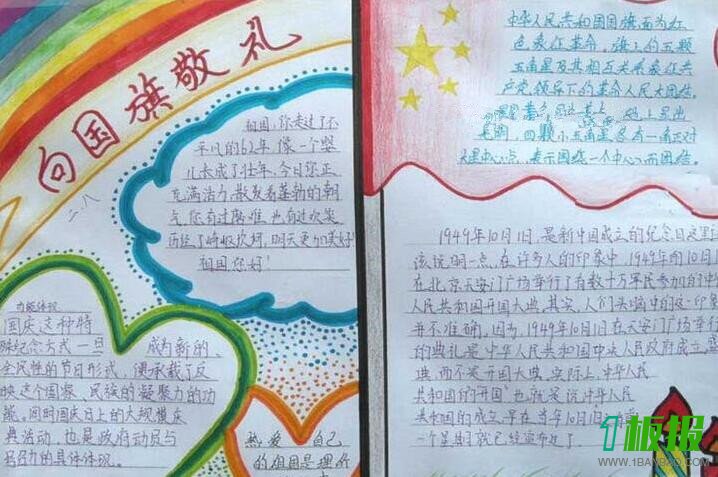 向国旗敬礼
祖国,你走过了不
平凡的62年,像一个婴
儿长成了壮年,今日你正
充满活力,散发着蓬勃的朝
气,您有过磨难,也有过欢笑
历经了崎岖坎坷,明天更加美好!
祖国您好!
二八
功能体现
国庆这种特
殊纪念方式一旦
成为新的、
全民性的节日形式,便承载了反
映这个国家、民族的凝聚力的功
能。同时国庆日上的大规模庆
典活动,也是政府动员与
号召力的具体体现。
热爱自己
的祖国是理所
中华人民共和国国旗旗面为红
色,象征革命。旗上的五颗
五角星及其相互关系象征共
产党领导下的革命人民大团结。
地上显出
光明,四颗小五角星各有一角正对
大星中心点,表示围绕一个中心而团结。
1949年10月1日,是新中国成立的纪念日这里
该说明一点,在许多人的印象中,1949年的10月1
在北京天安门广场举行了有数十万军民参加的中
人民共和国开国大典。其实,人们头脑中的这一印象
并不准确。因为,1949年10月1日在天安门广场举行
的典礼是中华人民共和国中央人民政府成立盛
典,而不是开国大典。实际上,中华人民
共和国的"开国",也就是说中华人民
共和国的成立,早在当年10月1日之
一个星期就已经宣布过了
1板报
WWW.1BANBAO.COM